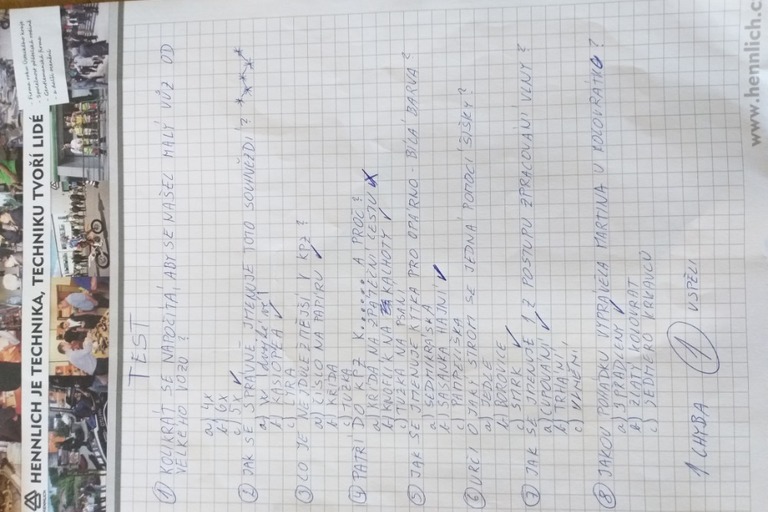 HENNLICH JE TECHNIKA, TECHNIKU TVOŘÍ LIDÉ
HENNLICH
www.hennlich.c
TEST
① KOLIKRÁT SE NAPOČÍTÁ, ABY SE NAŠEL MALÝ VŮZ OD
VELKÉHO VOZU ?
a) 4x
b) 6x
c) 5x ✓
② JAK SE SPRÁVNĚ JMENUJE TOTO SOUHVĚZDÍ ?
a) W
b) KASIOPEA ✓
c) LYRA
③ CO JE NEJDŮLEŽITĚJŠÍ V KPZ ?
a) ČÍSLO NA PAPÍRU ✓
b) KŘÍDA
c) TUŽKA
④ PATŘÍ DO KPZ K...... A PROČ ?
a) KŘÍDA NA ZPÁTEČNÍ CESTU x
b) KNOFLÍK NA KALHOTY ✓
c) TUŽKA NA PSANÍ
⑤ JAK SE JMENUJE KYTKA PRO OPARNO - BÍLÁ BARVA ?
a) SEDMIKRÁSKA
b) SASANKA HAJNÍ ✓
c) PAMPELIŠKA
⑥ URČI O JAKÝ STROM SE JEDNÁ POMOCÍ ŠIŠKY ?
a) JEDLE
b) BOROVICE
c) SMRK ✓
⑦ JAK SE JMENUJE 1 Z POSTUPU ZPRACOVÁNÍ VLNY ?
a) CUPOVÁNÍ ✓
b) TRHÁNÍ
c)
⑧ JAKOU POHÁDKU VYPRÁVĚLA MARTINA U KOLOVRÁTKU ?
a) 3 PŘADLENY ✓
b) ZLATÝ KOLOVRAT
c) SEDMERO KRKAVCŮ
1 CHYBA ① USPĚLI